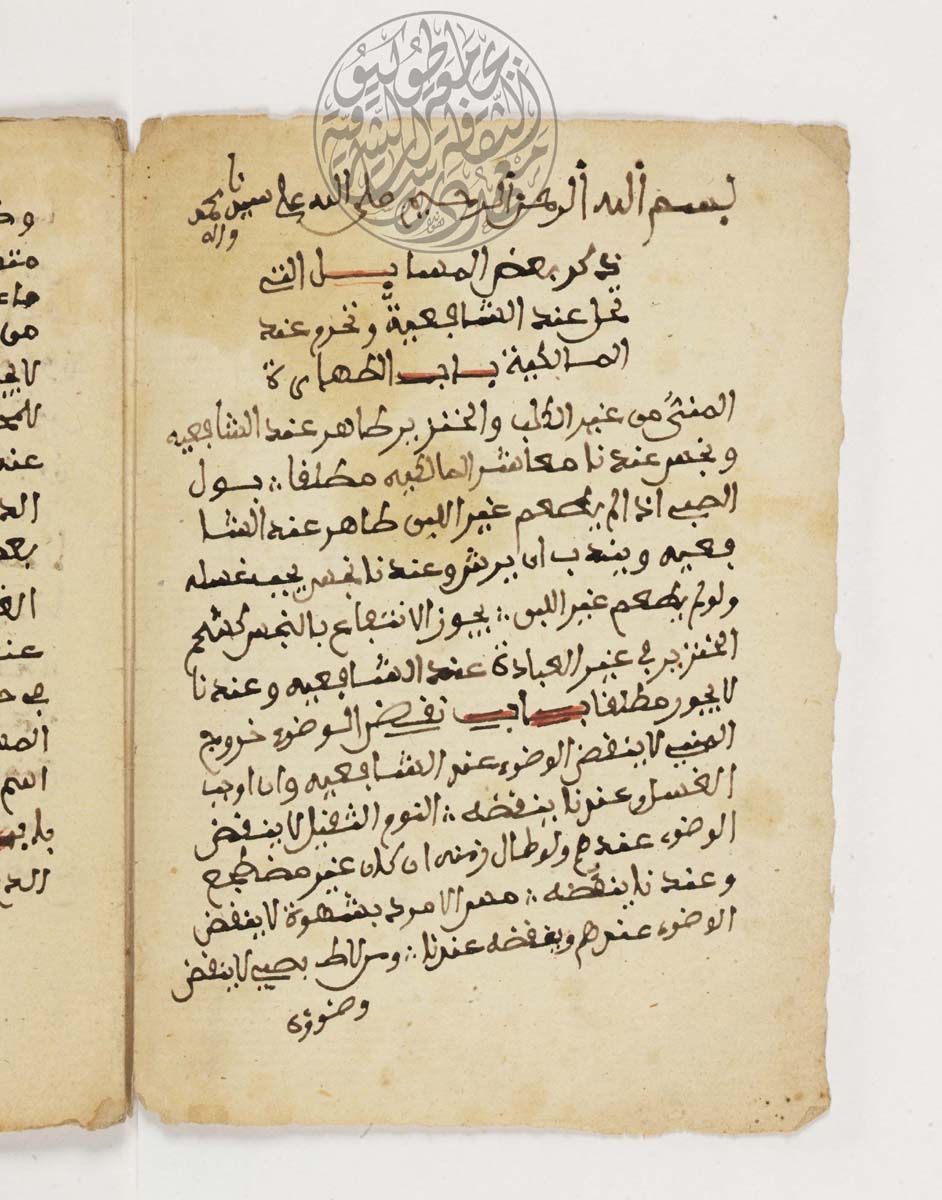 بسم الله الرحمن الرحيم صلى الله على سيدنا محمد
واله
ذكر بعض المسايل التي
تحل عند الشافعية وتحرم عند
المالكية باب الطهارة
المني من غير الكلب والخنزير طاهر عند الشافعيه
ونجس عندنا معاشر المالكيه مطلقا ؞ بول
الصبي اذا لم يطعم غير اللبن طاهر عند الشا
فعيه ويندب ان يرش وعندنا نجس يجب غسله
ولو لم يطعم غير اللبن ؞ يجوز الانتفاع بالنجس كشحم
الخنزير في غير العبادة عند الشافعيه وعندنا
لا يجوز مطلقا باب نقض الوضوء خروج
المني لا ينقض الوضوء عند الشافعيه وان اوجب
الغسل وعندنا ينقضه ؞ النوم الثقيل لا ينقض
الوضوء عندهم ولو طال زمنه ان كان غير مضطجع
وعندنا ينقضه ؞ مس الامرد بشهوة لا ينقض
الوضوء عندهم وينقضه عندنا ؞ ومن لاط بصبي لا ينقض
وضوؤه